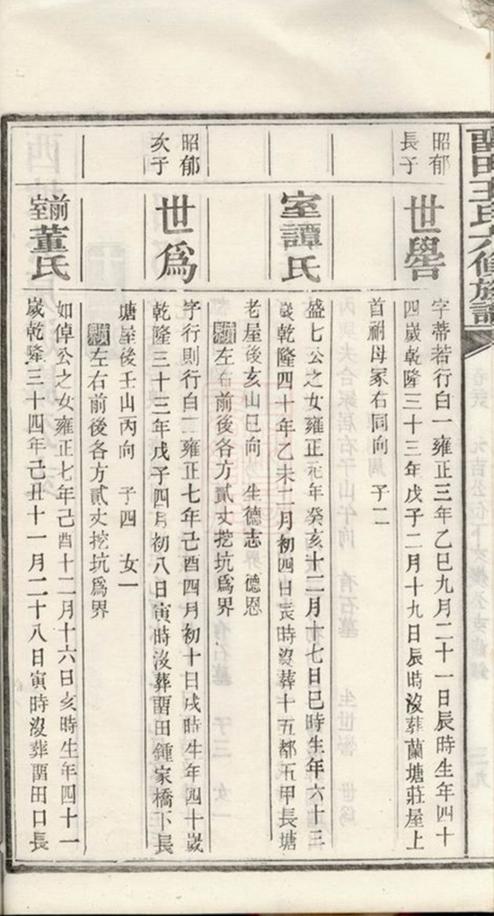 畱田王氏六修族譜
三九
昭郁
長子
世嚳
字蒂若行白一雍正三年乙巳九月二十一日辰時生年四十
四歲乾隆三十三年戊子二月十九日辰時沒葬蘭塘莊屋上
首祔母冢右同向 子二
室譚氏
盛七公之女雍正元年癸亥十二月十七日巳時生年六十三
歲乾隆四十年乙未二月初四日辰時沒葬十五都五甲長塘
老屋後亥山巳向 生德志 德恩
左右前後各方貳丈挖坑爲界
昭郁
次子
世爲
字行則行白二雍正七年己酉四月初十日戌時生年四十歲
乾隆三十三年戊子四月初八日寅時沒葬畱田鍾家橋下長
塘屋後壬山丙向 子四 女一
左右前後各方貳丈挖坑爲界
前室董氏
如倬公之女雍正七年己酉十二月十六日亥時生年四十一
歲乾隆三十四年己丑十一月二十八日寅時沒葬畱田口長